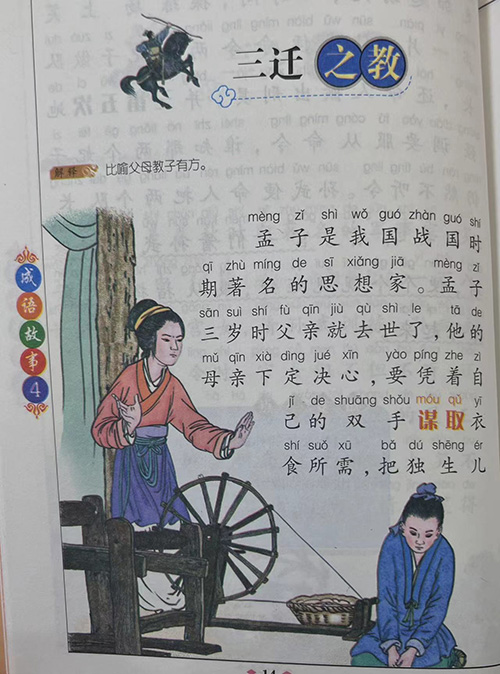 三迁之教
解释 比喻父母教子有方。
mèng zǐ shì wǒ guó zhàn guó shí
孟子是我国战国时
qī zhù míng de sī xiǎng jiā mèng zǐ
期著名的思想家。孟子
sān suì shí fù qīn jiù qù shì le tā de
三岁时父亲就去世了,他的
mǔ qīn xià dìng jué xīn yào píng zhe zì
母亲下定决心,要凭着自
jǐ de shuāng shǒu móu qǔ yī
己的双手谋取衣
shí suǒ xū bǎ dú shēng ér
食所需,把独生儿
成语故事4
14